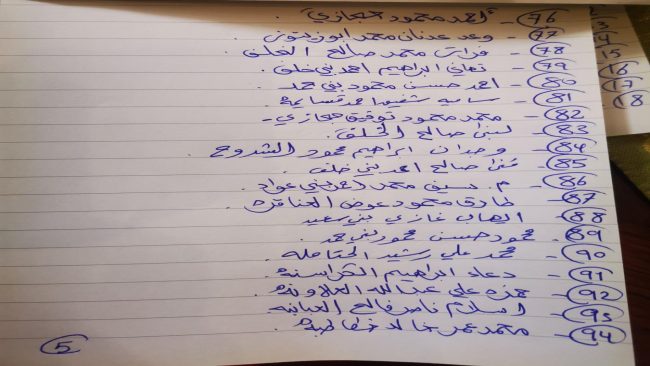 76- أحمد محمود حجازي
77- وعد عدنان محمد ابوزيتون
78- فراس محمد صالح الخلف
79- تهاني ابراهيم احمد بني خلف
80- احمد حسن محمود بني حمد
81- ساميه شفيق احمد قسايمة
82- محمد محمود توفيق حجازي -
83- لبنى صالح الخلف
84- وجدان ابراهيم محمود الشروح
85- صالح احمد بني خلف
86- م. محمد احمد بني عواد
87- طارق محمود عوض العناقرة
88- ايهاب غازي بني سعيد
89- محمود حسن محمود بني حمد
90- محمد علي رشيد الختامله
91- دعاء ابراهيم الكراسنة
92- حمزه علي عبدالله العلاونة
93- اسلام ناصر فالح العبابنه
94- محمد عمر خالد خطاطبة
5
16
17
18